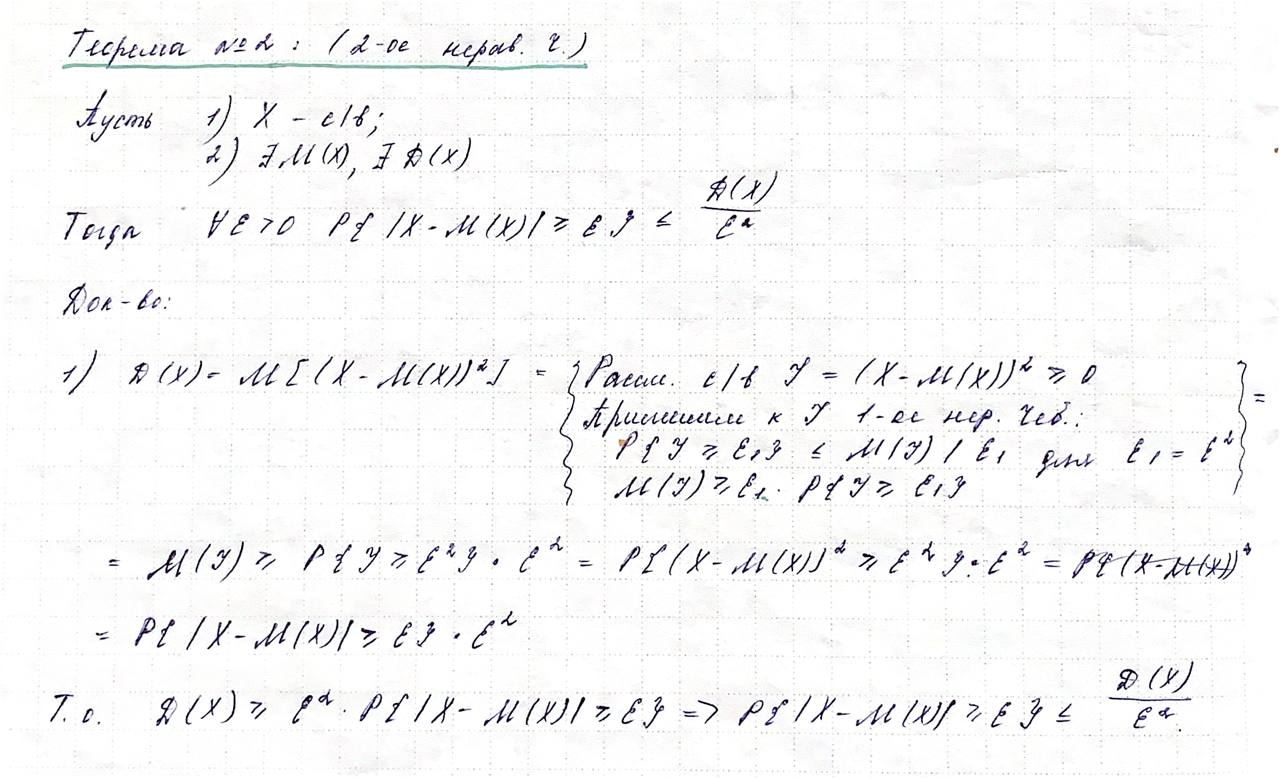 Теорема №2: (2-ое нерав. Ч.)
Пусть 1) X - с/в;
2) ∃ M(X), ∃ D(X)
Тогда ∀ε>0 P{ |X-M(X)| ≥ ε} ≤ D(X)/ε²
Док-во:
1) D(X) = M[(X-M(X))²] = { Рассм. с/в Y = (X-M(X))² ≥ 0
Применим к Y 1-ое нер. Чеб.:
P{Y ≥ ε₁} ≤ M(Y) / ε₁ для ε₁ = ε²
M(Y) ≥ ε₁ · P{Y ≥ ε₁} } =
= M(Y) ≥ P{Y ≥ ε²} · ε² = P{(X-M(X))² ≥ ε²} · ε² = P{(X-M(X))²
= P{ |X-M(X)| ≥ ε} · ε²
Т.о. D(X) ≥ ε² · P{ |X-M(X)| ≥ ε} => P{ |X-M(X)| ≥ ε} ≤ D(X)/ε².